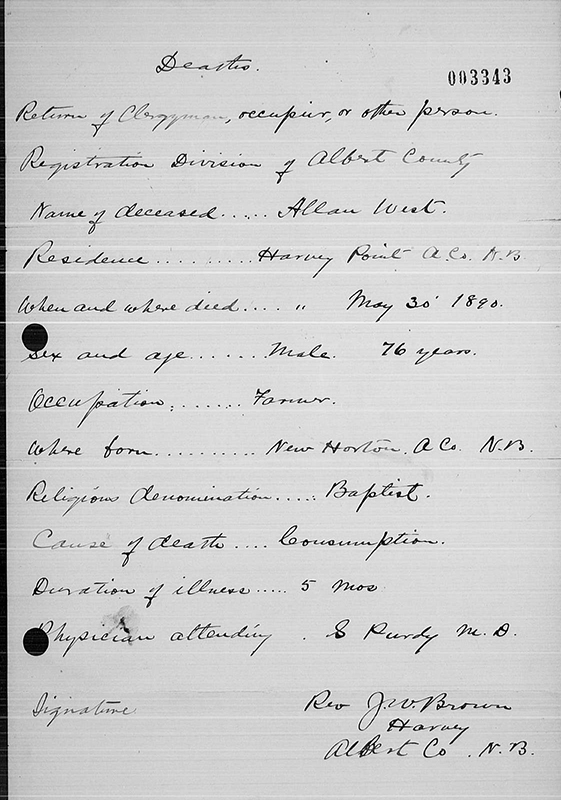 Deaths.
003343
Return of Clergyman, occupier, or other person.
Registration Division of Albert County
Name of deceased ..... Allan West.
Residence ......... Harvey Point A.Co. N.B.
When and where died .... " May 30' 1890.
Sex and age ....... Male. 76 years.
Occupation: ...... Farmer.
Where born .......... New Horton. A Co. N.B.
Religious denomination ..... Baptist.
Cause of death .... Consumption.
Duration of illness ..... 5 mos
Physician attending . S Purdy M.D.
Signature Rev J.W. Brown
Harvey
Albert Co. N.B.